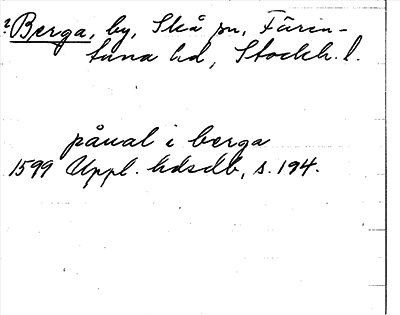 ? Berga, by, Skå sn, Färin-
tuna hd, Stockh. l.
påual i berga
1599 Uppl. hdsdb, s. 194.